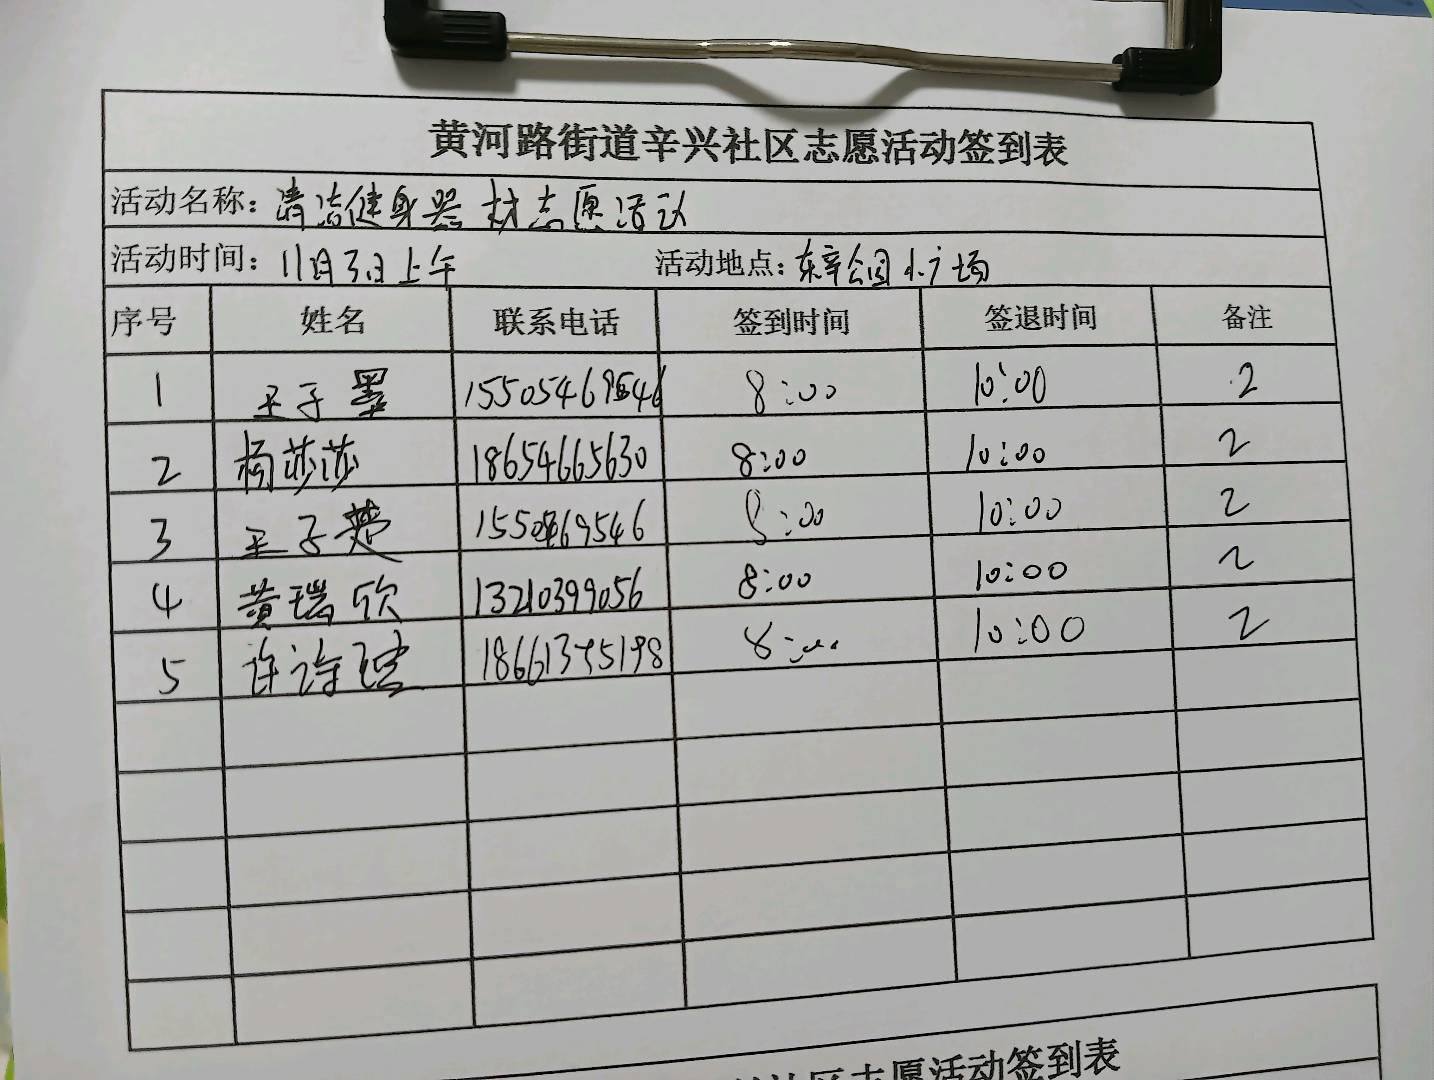 黄河路街道辛兴社区志愿活动签到表
活动名称：清洁健身器材志愿活动
活动时间：11月3日上午 活动地点：东辛公园小广场
序号 姓名 联系电话 签到时间 签退时间 备注
1 王子墨 8:00 10:00 2
2 杨莎莎 18654665630 8:00 10:00 2
3 王子 8:00 10:00 2
4 黄瑞欣 13210399056 8:00 10:00 2
5 许诗 8:00 10:00 2
社区志愿活动签到表